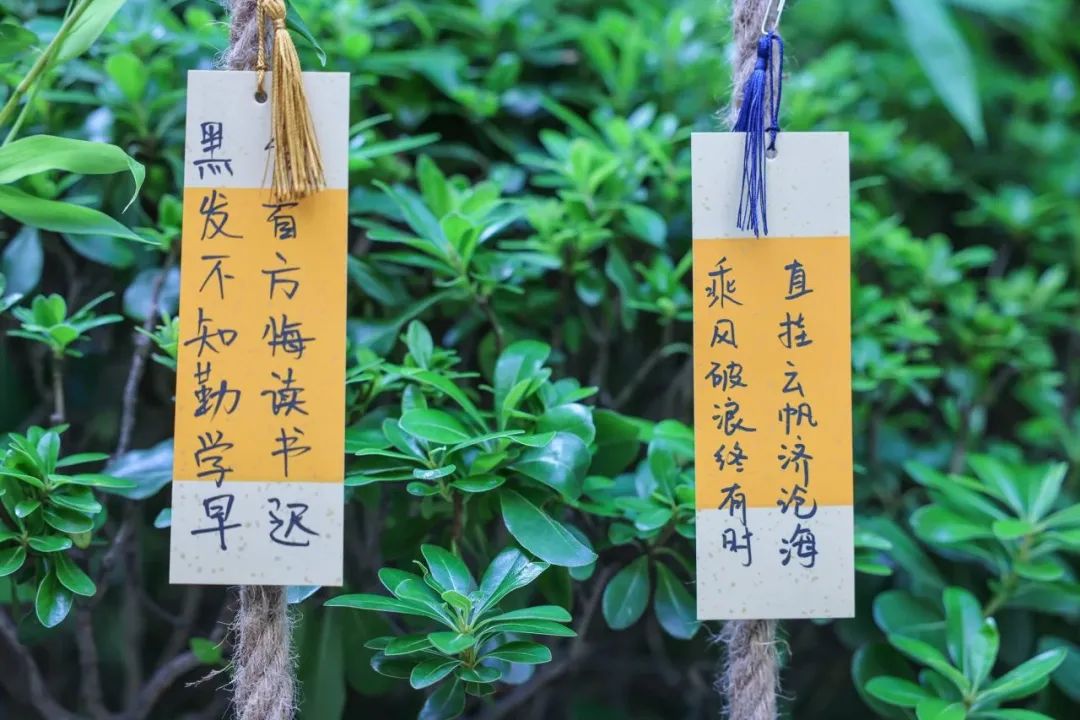 黑发不知勤学早
首方悔读书迟
乘风破浪终有时
直挂云帆济沧海